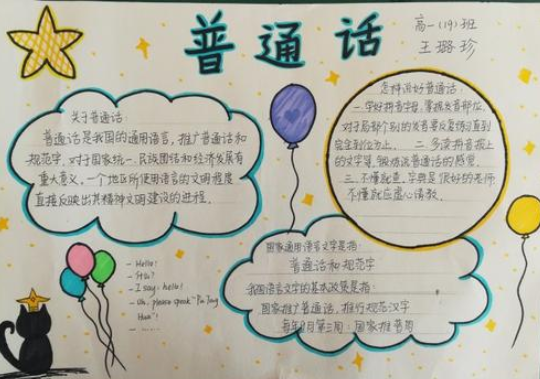 普通话
高一(19)班
王璐珍
关于普通话:
普通话是我国的通用语言,推广普通话和
规范字,对于国家统一、民族团结和经济发展有
重大意义。一个地区所使用语言的文明程度
直接反映出其精神文明建设的进程。
怎样说好普通话:
一.学好拼音字母,掌握发音部位。
对于局部个别的发音要反复练习直到
完全到位为止。二.多读拼音报上
的文字等,锻炼说普通话的感觉。
三.不懂就查,字典是很好的老师
不懂就应虚心请教。
国家通用语言文字是指:
普通话和规范字
我国语言文字的基本政策是指:
国家推广普通话,推行规范汉字
每年9月第三周:国家推普周
- Hello!
- I say: hello!
- Oh, please speak "Pu Tong
Hua"!
- ......